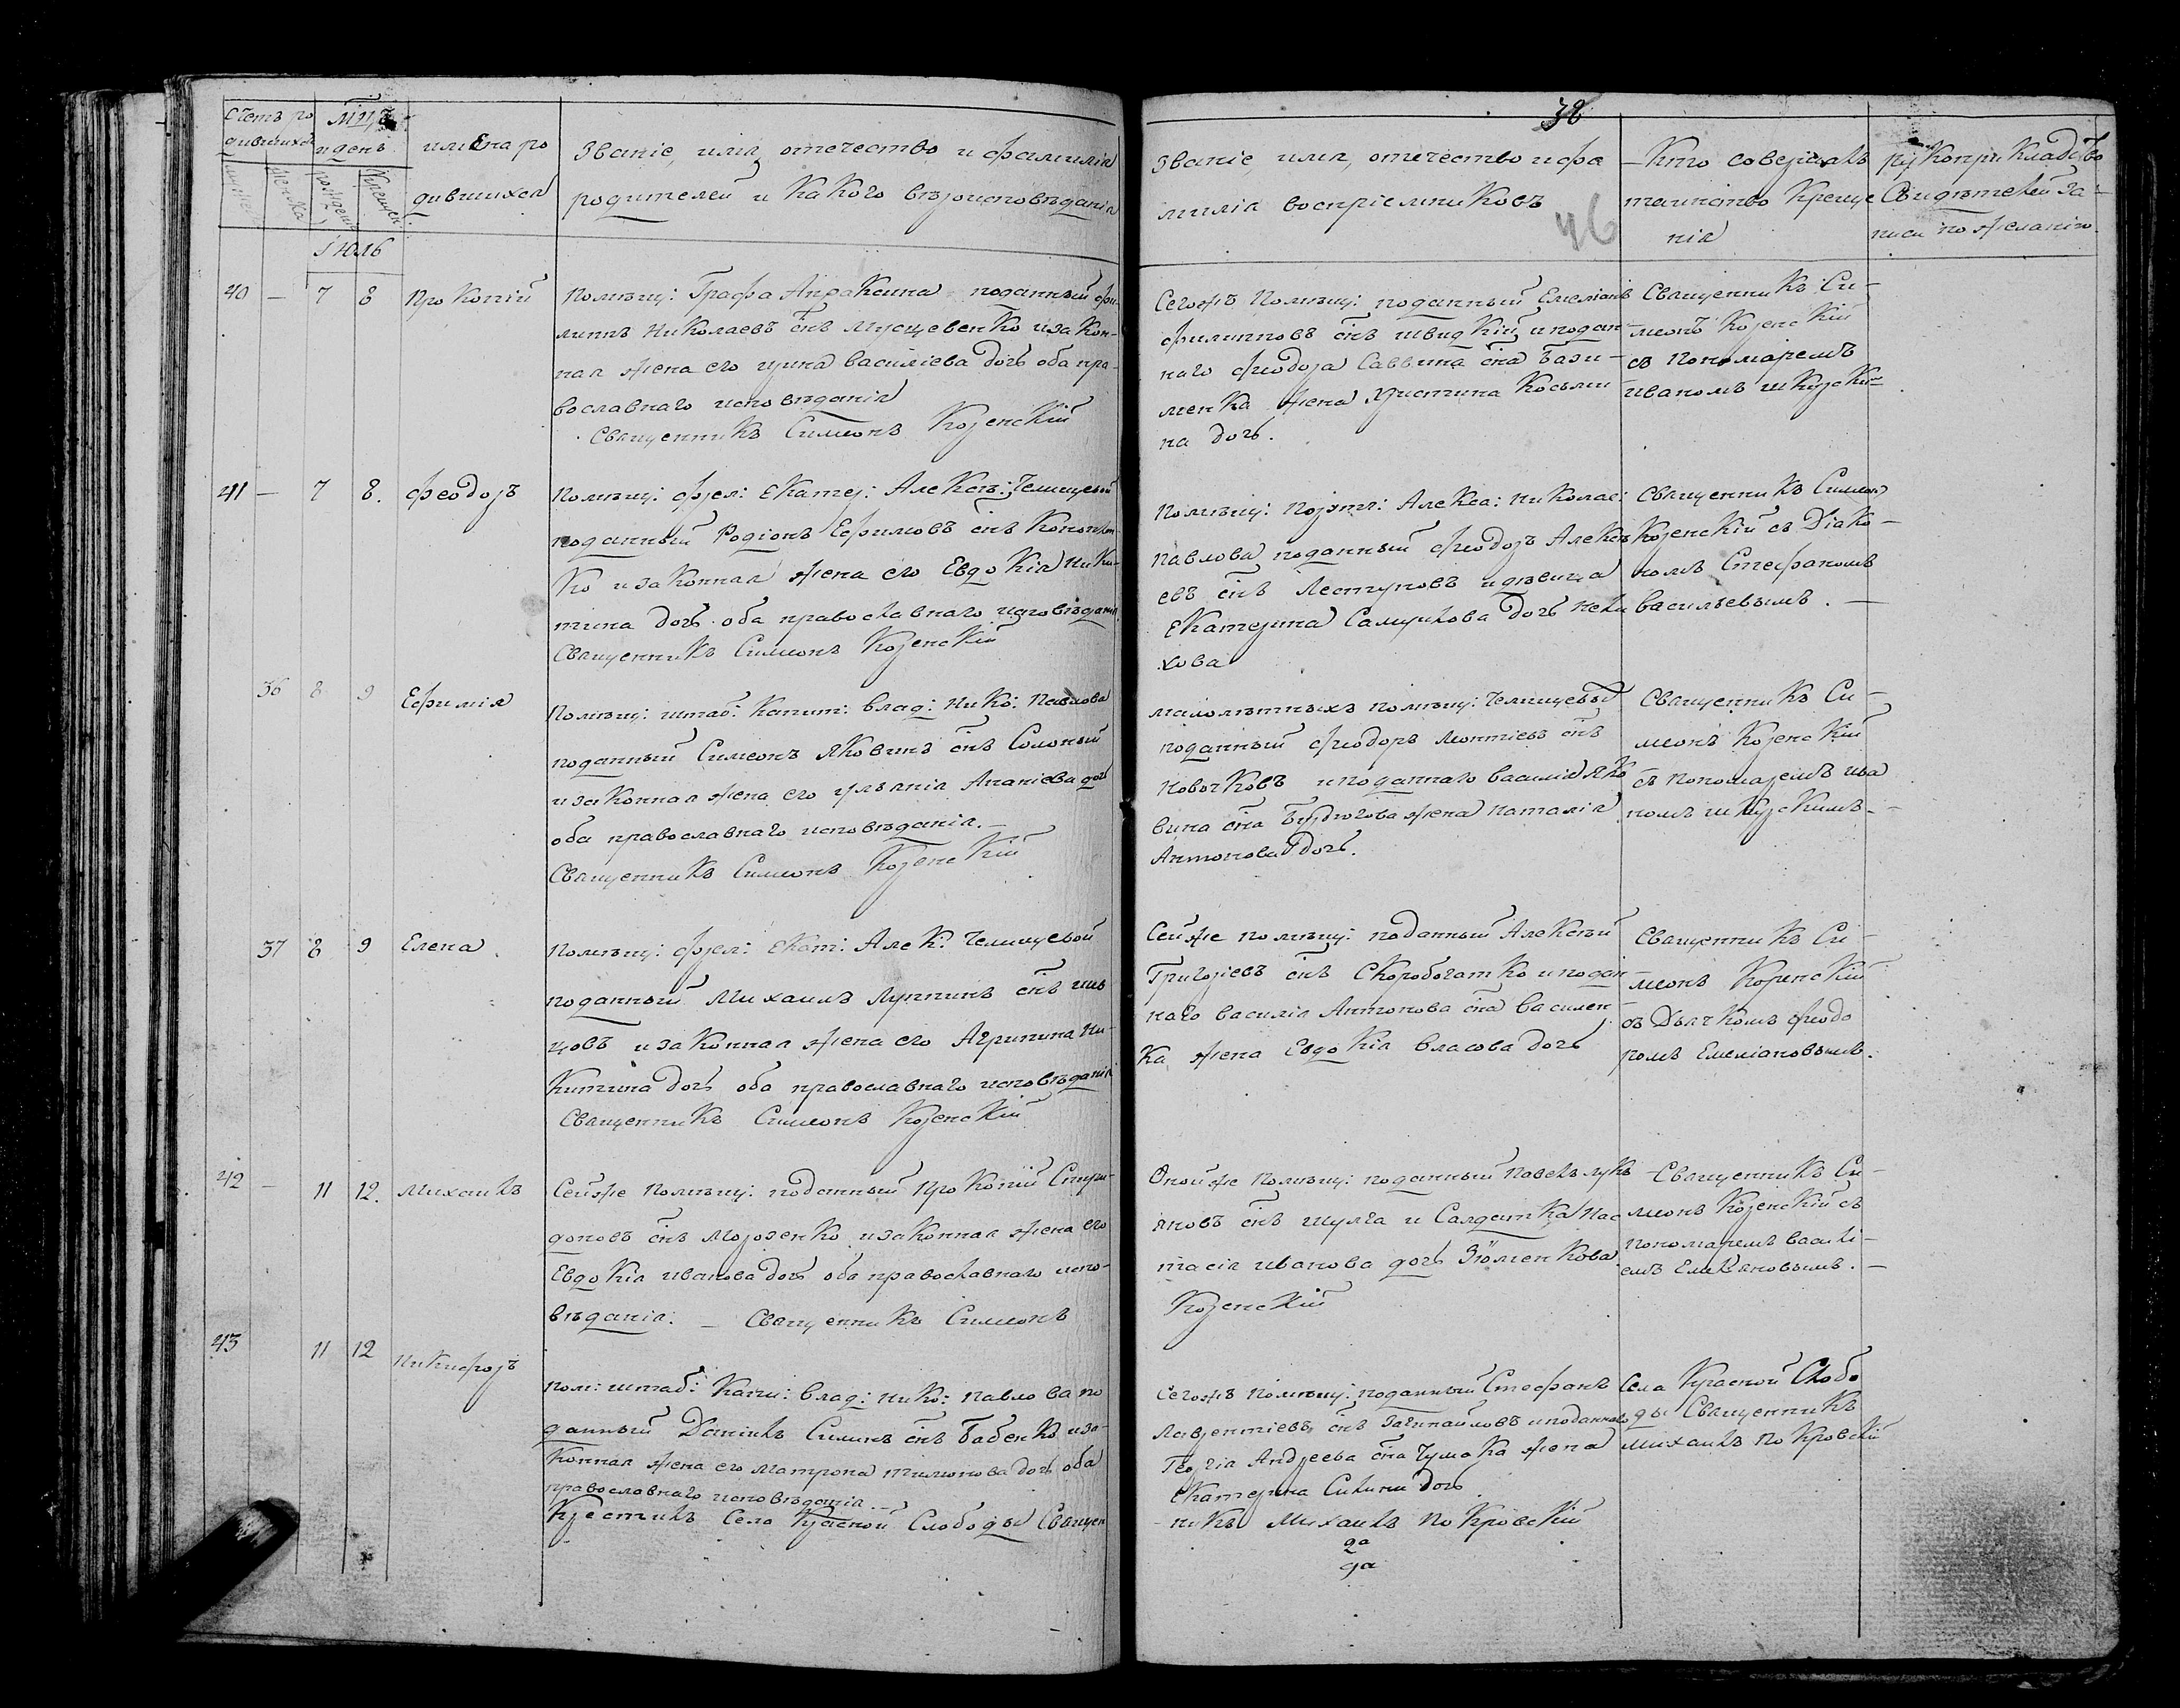 38
46
Счетъ ро
дившихся
Мцъ
и день
имена ро
дившихся
Званіе, имя, отечество и фамилія
родителей и какого вѣроисповѣданія
Званіе, имя, отечество и фа
милія воспріемниковъ
Кто совершалъ
таинство Креще
нія
рукоприкладство
Свидѣтелей за-
писи по желанію
Іюль
40 — 7 8 Прокопій
Помѣщ: Графа Апраксина поданный Фи
липпъ Николаевъ снъ Мусцевенко и закон-
ная жена его ирина василіева дочь оба пра-
вославнаго исповѣданія
Священникъ Симеонъ Коренскій
Сегожъ Помѣщ: поданный Емеліанъ
филипповъ снъ швидкій и подан-
наго Феодора Саввина сна Бази-
ленка жена Христина Косьми
на дочь.
Священникъ Си-
меонъ Коренскій
съ Пономаремъ
иваномъ
41 — 7 8. Феодоръ
Помѣщ: фрел: Екатер: Алексѣ: Челищевой
поданный Родіонъ Ефимовъ снъ
ко и законная жена его Евдокія Ники-
тина дочь оба православнаго исповѣданія
Священникъ Симеонъ Коренскій
Помѣщ: Алекса: Николае:
Павлова поданный Феодоръ Алексѣ
евъ снъ Лестуновъ и дѣвица
Екатерина Самуилова дочь
хова
Священникъ Симеон
Коренскій съ Діако-
номъ Стефаномъ
васильевымъ. —
36 8 9 Ефимія
Помѣщ: штаб: Капит: Влад: Нико: Павлова
поданный Симеонъ Яковинъ снъ Солоный
и законная жена его уліанія Ананіева дочь
оба православнаго исповѣданія. —
Священникъ Симеонъ Коренскій
малолѣтныхъ помѣщ: Челищевы
поданный Феодоръ Леонтіевъ снъ
Новочковъ и поданнаго василія Яко
вина сна жена Наталія
Антонова дочь.
Священникъ Си-
меонъ Коренскій
съ Пономаремъ ива
номъ
37 8 9 Елена
Помѣщ: фрел: Екат: Алек: Челищевой
поданный Михаилъ Луппинъ снъ
цовъ и законная жена его Агрипина Ни-
китина дочь оба православнаго исповѣданія
Священникъ Симеонъ Коренскій
Сейже помѣщ: поданный Алексѣй
Григоріевъ снъ Скоробогатко и подан-
наго василія Антонова сна василен-
ка жена Евдокія власова дочь
Священникъ Си-
меонъ Коренскій
съ Дьячкомъ Феодо
ромъ Емеліановымъ.
42 — 11 12. Михаилъ
Сейже Помѣщ: поданный Прокопій Спири-
доновъ снъ Морозенко и законная жена его
Евдокія иванова дочь оба православнаго испо-
вѣданія. — Священникъ Симеонъ
Онойже Помѣщ: поданный Павелъ лукъ
яновъ снъ шулга и Салдатка Нас
тасія иванова дочь Зюменкова
Коренскій
Священникъ Си-
меонъ Коренскій съ
Пономаремъ васили-
емъ Емельяновымъ. —
43 11 12 Никифоръ
пом: штаб: Капи: Влад: Нико: Павлова по
данный Даніилъ Симинъ снъ Бабенко и за-
конная жена его Матрона тимонова дочь оба
православнаго исповѣданія. —
Крестилъ Села Красной Слободы Священ
Сегожъ Помѣщ: поданный Стефанъ
Лаврентіевъ снъ и поданнаго
Георгія Андреева сна Чумака жена
Екатерина Силина дочь
никъ Михаилъ Покровскій
Села Красной Слобо
ды Священникъ
Михаилъ Покровскій